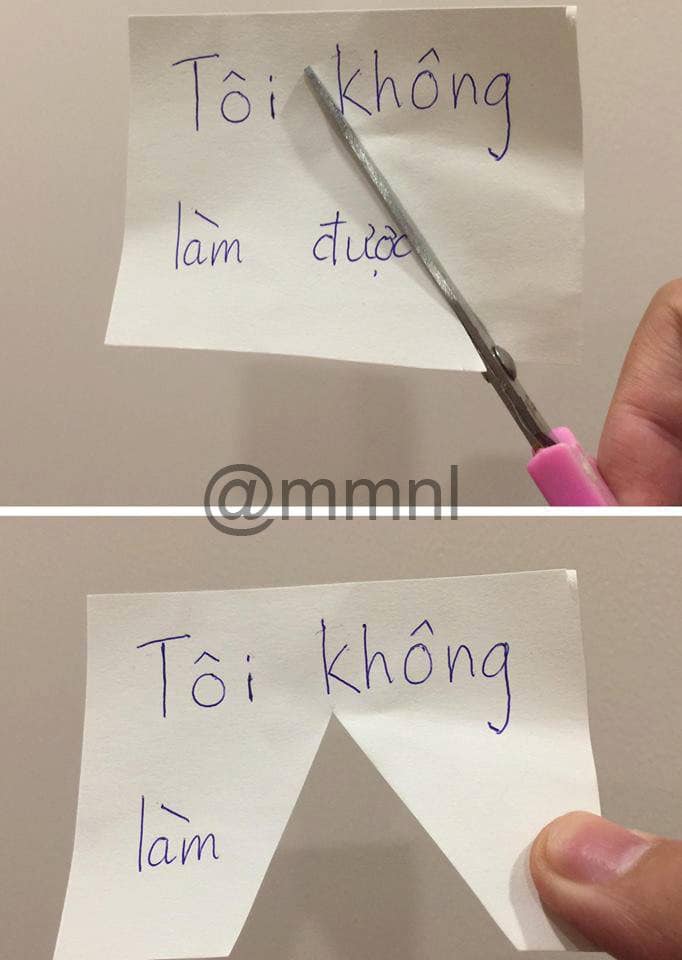 Tôi không
làm được
@mmnl
Tôi không
làm